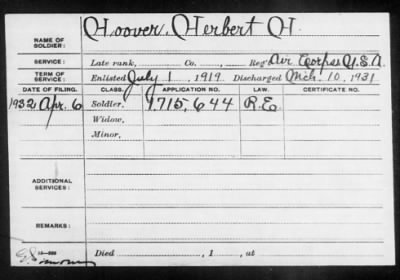 NAME OF SOLDIER: Hoover, Herbert H.
SERVICE: Late rank, Co. , Reg't Air Corps U.S.A.
TERM OF SERVICE: Enlisted July 1, 1919. Discharged Mch. 10, 1931
DATE OF FILING. CLASS. APPLICATION NO. LAW. CERTIFICATE NO.
1932 Apr. 6 Soldier, 1,715,644 R.E.
Widow,
Minor,
ADDITIONAL SERVICES:
REMARKS:
Died , 1 , at